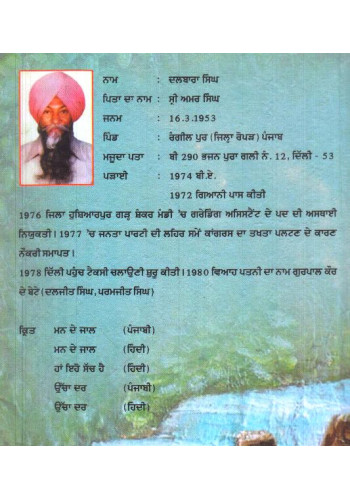 ਨਾਮ : ਦਲਬਾਰਾ ਸਿੰਘ
ਪਿਤਾ ਦਾ ਨਾਮ : ਸ੍ਰੀ ਅਮਰ ਸਿੰਘ
ਜਨਮ : 16.3.1953
ਪਿੰਡ : ਰੰਗੀਲ ਪੁਰ (ਜਿਲ੍ਹਾ ਰੋਪੜ) ਪੰਜਾਬ
ਮਜੂਦਾ ਪਤਾ : ਬੀ 290 ਭਜਨ ਪੁਰਾ ਗਲੀ ਨੰ. 12, ਦਿੱਲੀ - 53
ਪੜਾਈ : 1974 ਬੀ.ਏ.
1972 ਗਿਆਨੀ ਪਾਸ ਕੀਤੀ
1976 ਜਿਲਾ ਹੁਸ਼ਿਆਰਪੁਰ ਗੜ੍ਹ ਸ਼ੰਕਰ ਮੰਡੀ 'ਚ ਗਰੇਡਿੰਗ ਅਸਿਸਟੈਂਟ ਦੇ ਪਦ ਦੀ ਅਸਥਾਈ
ਨਿਯੁਕਤੀ। 1977 'ਚ ਜਨਤਾ ਪਾਰਟੀ ਦੀ ਲਹਿਰ ਸਮੇਂ ਕਾਂਗਰਸ ਦਾ ਤਖਤਾ ਪਲਟਣ ਦੇ ਕਾਰਣ
ਨੌਕਰੀ ਸਮਾਪਤ।
1978 ਦਿੱਲੀ ਪਹੁੰਚ ਟੈਕਸੀ ਚਲਾਉਣੀ ਸ਼ੁਰੂ ਕੀਤੀ। 1980 ਵਿਆਹ ਪਤਨੀ ਦਾ ਨਾਮ ਗੁਰਪਾਲ ਕੌਰ
ਦੋ ਬੇਟੇ (ਦਲਜੀਤ ਸਿੰਘ, ਪਰਮਜੀਤ ਸਿੰਘ)
ਕ੍ਰਿਤ ਮਨ ਦੇ ਜਾਲ (ਪੰਜਾਬੀ)
ਮਨ ਦੇ ਜਾਲ (ਹਿੰਦੀ)
ਹਾਂ ਇਹੋ ਸੱਚ ਹੈ (ਹਿੰਦੀ)
ਉੱਚਾ ਦਰ (ਪੰਜਾਬੀ)
ਉੱਚਾ ਦਰ (ਹਿੰਦੀ)